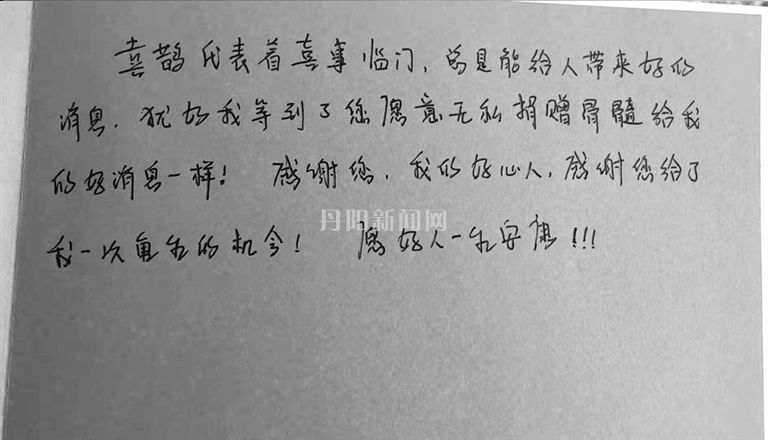 喜鹊代表着喜事临门，总是能给人带来好的
消息．犹如我等到了您愿意无私捐赠骨髓给我
的好消息一样！ 感谢您，我的好心人，感谢您给了
丹阳新闻网
我一次重生的机会！ 愿好人一生安康!!!